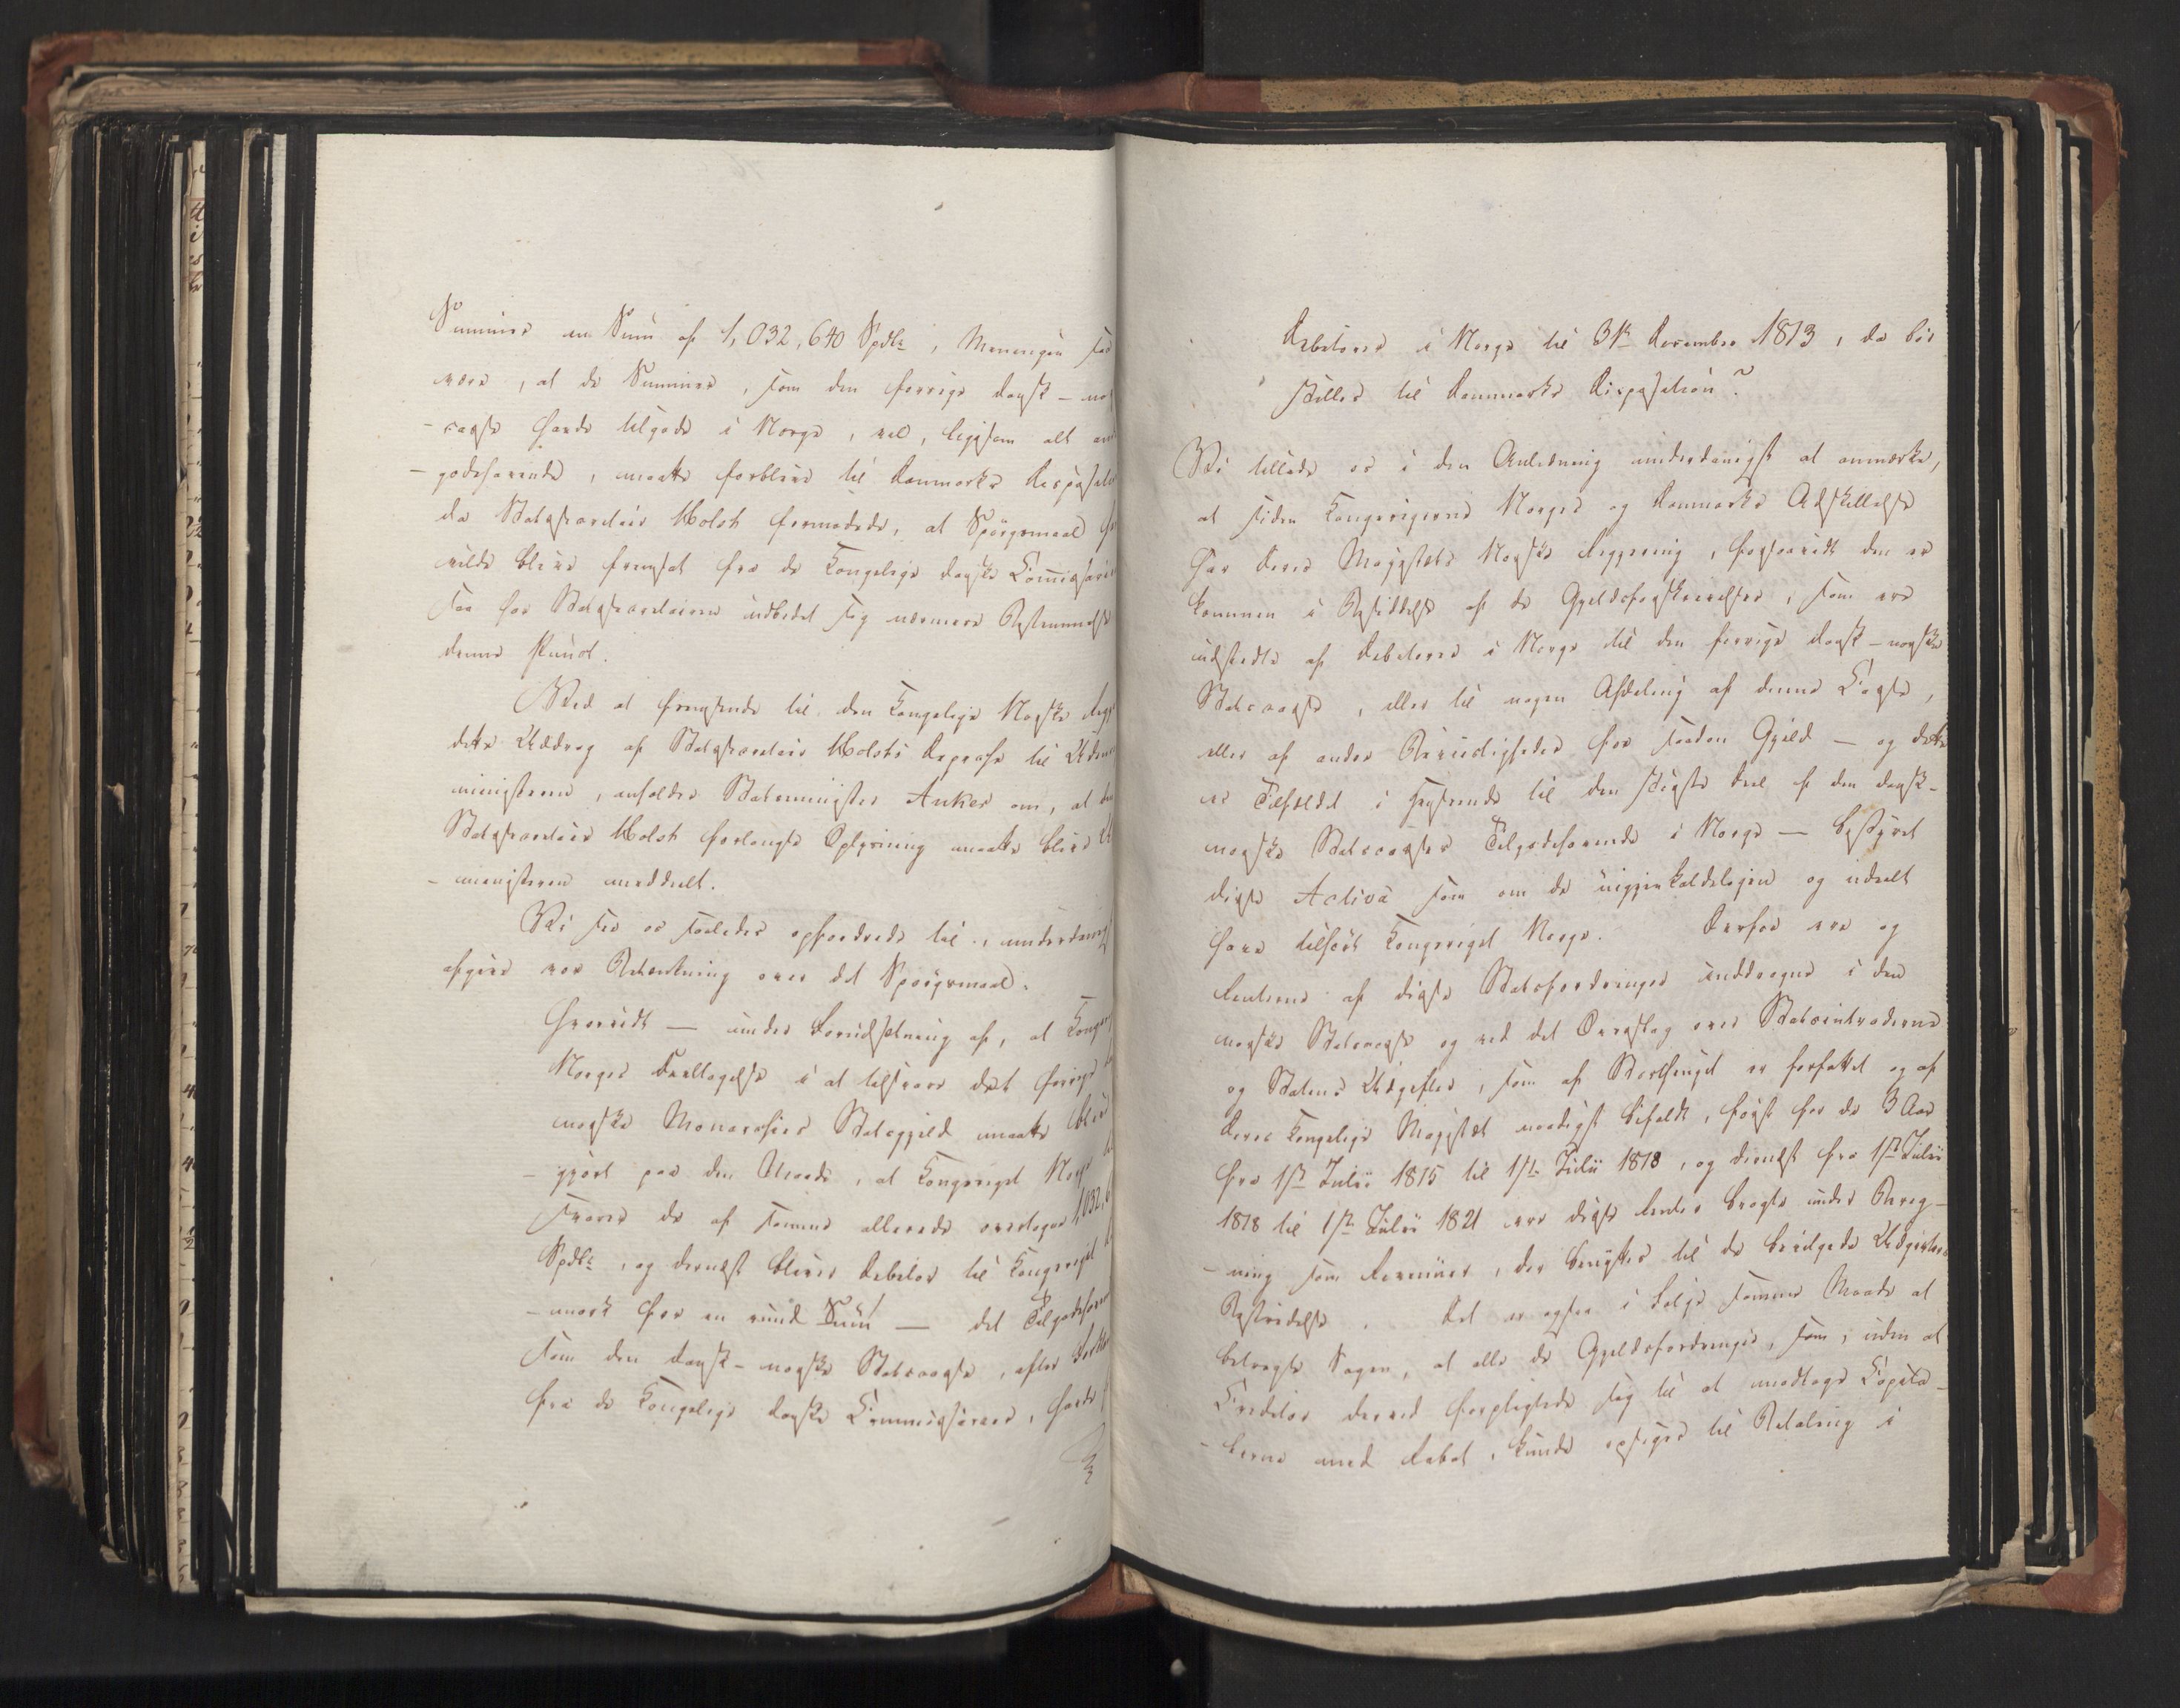 Summer en Sum af 1,032,640 Spdlr, Meningen
være, at de Summer, som den forrige dansk-
-casse havde tilgode i Norge, vel, ligesom alt
-godehavende, maatte forblive til Danmarks
da Statssecretair Holst formodede, at Spörgsmaal
vilde blive fremsat fra de Kongelige danske
saa har Statssecretairen udbedet sig nærmere
denne Punct.
Ved at fremsende til den Kongelige Norske
dette Uddrag af Statssecretair Holsts Depeche til
ministeren, anholder Statsminister Anker om, at den
Statssecretair Holst forlangte Oplysning maatte blive
-ministeren meddeelt.
Vi see os saaledes opfordrede til, underdanigst
afgive vor Betænkning over det Spörgsmaal:
Hvorvidt — under Forudsætning af, at
Norges Deeltagelse i at tilsvare det forrige
norske Monarchies Statsgjeld maatte blive
-gjort paa den Maade, at Kongeriget Norge
svarer de af samme allerede overtagne 1,032,6
Spdlr, og dernæst bliver Debitor til Kongeriget
-mark for en rund Sum — det Tilgodehavende
som den dansk-norske Statscasse, efter
fra de Kongelige danske Commissairer, havde
Debitorer i Norge til 31te December 1813, da bör
stilles til Danmarks Disposition?
Vi tillade os i den Anledning underdanigst at anmærke,
at siden Kongerigerne Norges og Danmarks Adskillelse
har Deres Majestæts Norske Regjering, forsaavidt den er
kommen i Besiddelse af de Gjeldsforskrivelser, som ere
udstedte af Debitorer i Norge til den forrige dansk-norske
Statscasse, eller til nogen Afdeling af denne Casse,
eller af andre Beviisligheder for saadan Gjeld — og dette
er Tilfældet i Henseende til den störste Deel af den dansk-
norske Statscasses Tilgodehavende i Norge — bestyret
disse Activa som om de uigjenkaldeligen og udeelt
have tilhört Kongeriget Norge. Derfor ere og
Renterne af disse Statsfordringer inddragne i den
norske Statscasse og ved det Overslag over Statsintraderne
og Statens Udgifter, som af Storthinget er forfattet og af
Deres Kongelige Majestæt naadigst bifaldt, först for de 3 Aar
fra 1ste Julii 1815 til 1ste Julii 1818, og dernæst fra 1ste Julii
1818 til 1ste Julii 1821 ere disse Renter bragte under Bereg-
-ning som Revenüer, der benyttes til de bevilgede Udgifters
Bestridelse. Det er ogsaa i Fölge samme Maade at
betragte Sagen, at alle de Gjeldsfordringer, som, uden at
Creditor derved forpligtede sig til at modtage Capita-
-lerne med Rabat, kunde opsiges til Betaling i